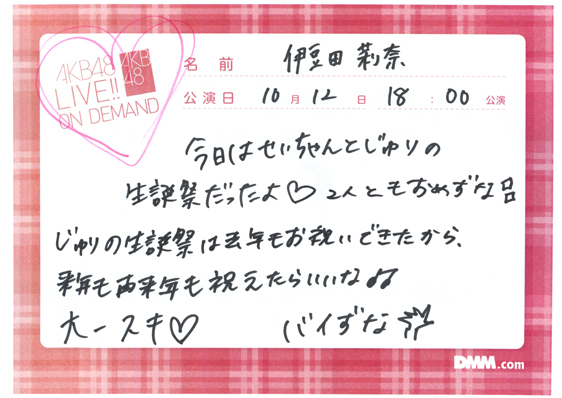 AKB48
LIVE!!
ON DEMAND
AKB
48
名前 伊豆田莉奈
公演日 10月12日 18:00公演
今日はせいちゃんとじゅりの
生誕祭だったよ♡2人ともおめずな
じゅりの生誕祭は去年もお祝いできたから、
来年も再来年も祝えたらいいな♪♪
大一スキ♡ バイずな
DMM.com